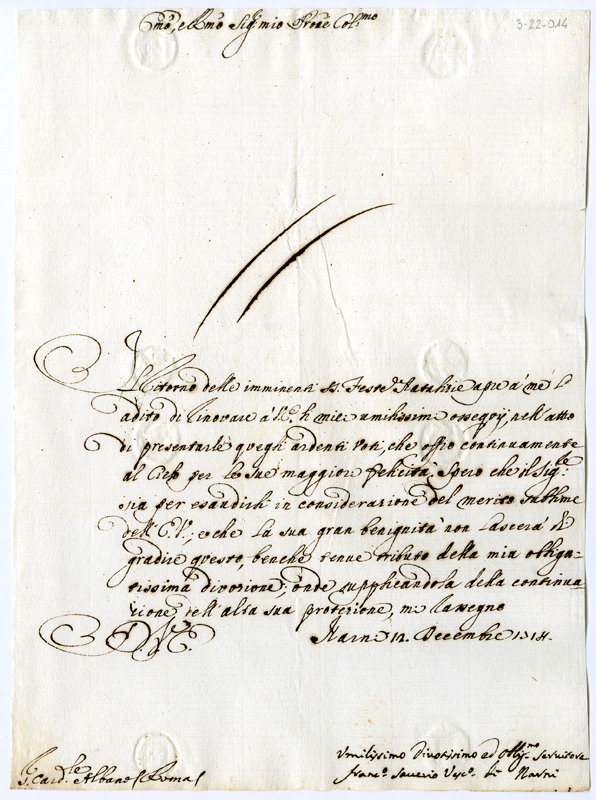 Emo, e Rmo Sigr mio Prone Colmo
3-22-014
Il ritorno delle imminenti SS. Feste Natalizie apre à me l'
adito di rinovare à V.E. li miei umilissimi ossequij, nell'atto
di presentarle quegli ardenti voti, che offro continuamente
al Cielo per le sue maggiori felicità. Spero che il Sigre
sia per esaudirli in considerazione del merito sublime
dell'E.V., e che la sua gran benignità non lascerà di
gradire questo, benche tenue tributo della mia obliga-
tissima divozione, onde supplicandola della continua-
zione dell'alta sua protezione, mi rassegno
D.V.E. Narni 12. Decembre 1714.
Umilissimo Divotissimo ed Obligmo Servitore
Franco Saverio Vesco di Narni
Sr Cardle Albano (Roma)